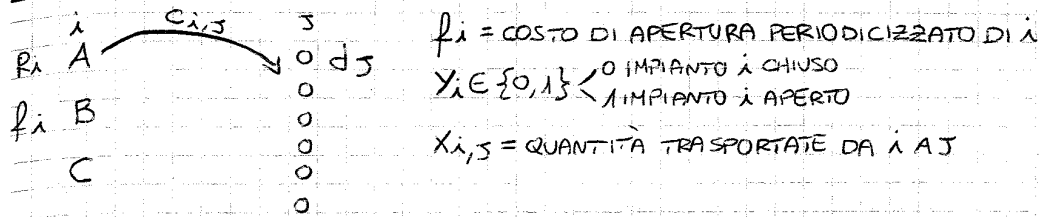 i Ci,J J
Ri A dJ
fi B
C
fi = COSTO DI APERTURA PERIODICIZZATO DI i
Yi ∈ {0,1} < 0 IMPIANTO i CHIUSO
1 IMPIANTO i APERTO
Xi,J = QUANTITÀ TRASPORTATE DA i A J